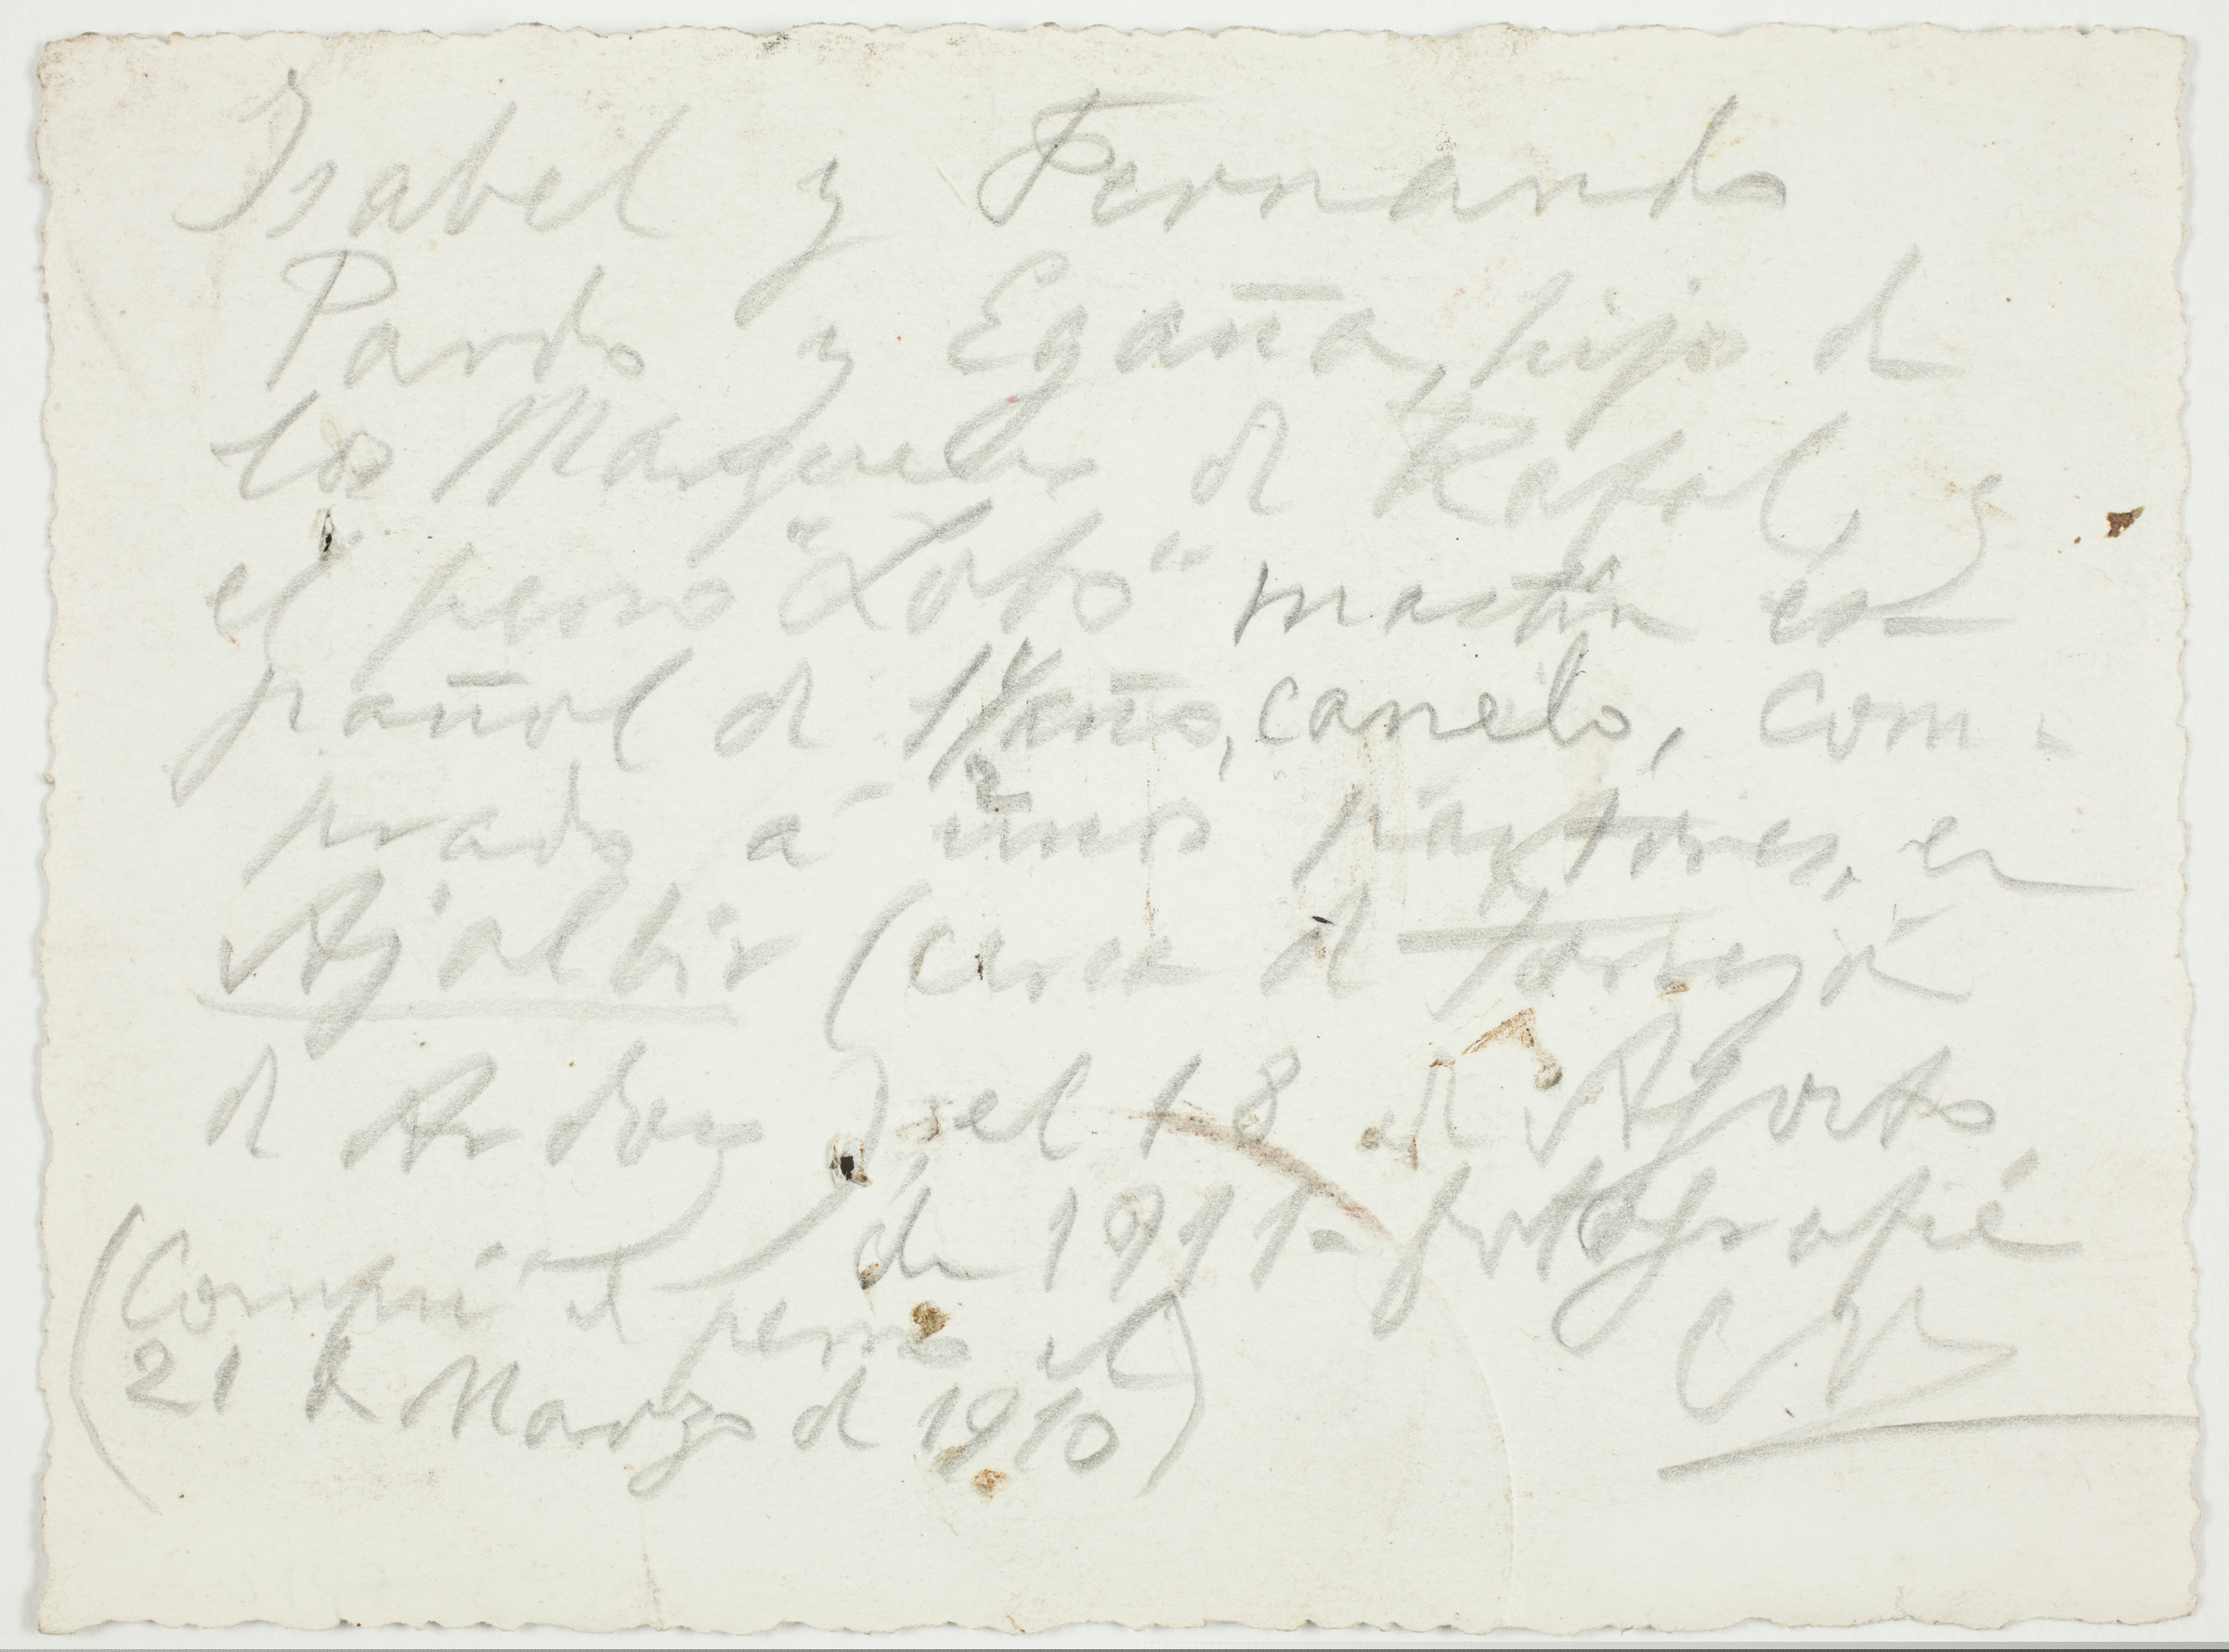 Isabel y Fernando
Pardo y Egaña, hijos de
los Marqueses de Rafal, y
el perro "Lobo" mastín es-
pañol de 1 1/2 año, canelo, com-
prado a unos pastores, en
Ajalbir (cerca de Torrejón
de Ardoz) el 18 de Agosto
de 1911 - fotografié
(Compré el perro el
21 de Marzo de 1910)